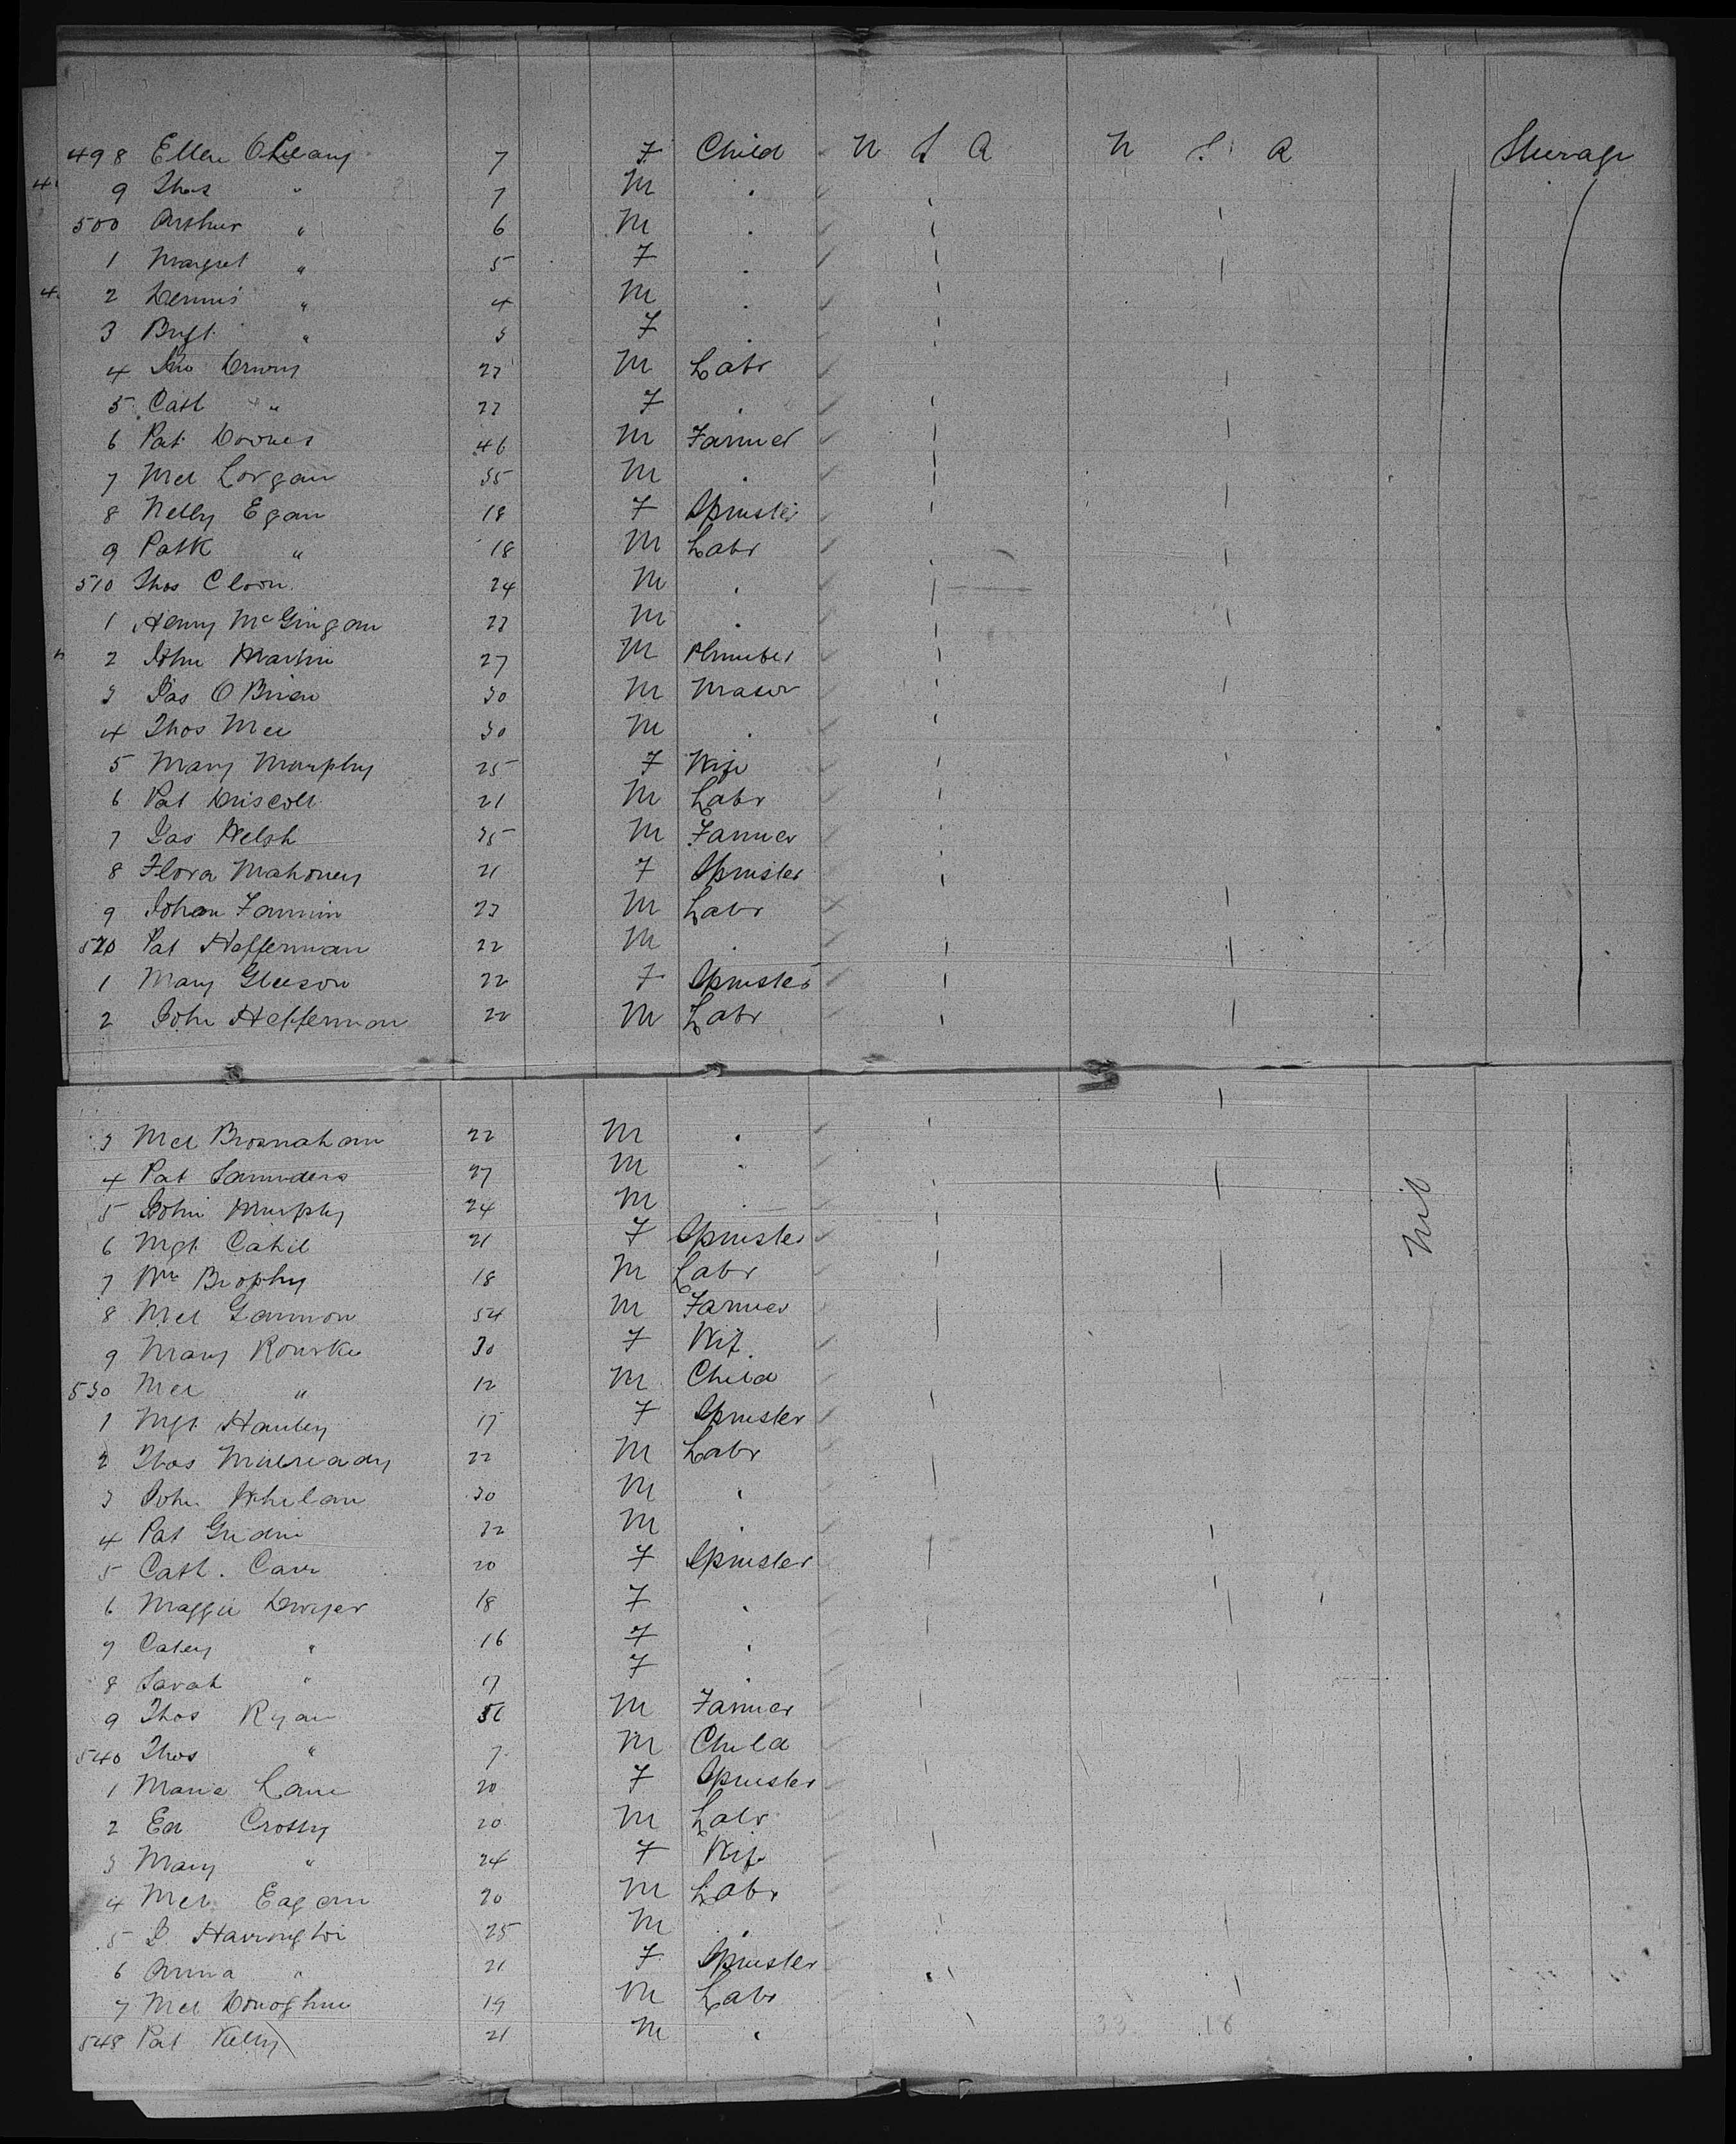 498 Ellen O'Leary 7 F Child U S A U S A Steerage
9 Thos " 7 M .
500 Arthur " 6 M .
1 Margret " 5 F .
2 Dennis " 4 M .
3 Bridgt " 3 F .
4 Jno 22 M Labr
5 Cath " 22 F .
6 Pat Downes 46 M Farmer
7 Mcl Lorgan 35 M .
8 Nelly Egan 18 F Spinster
9 Patk " 18 M Labr
510 Thos Cloon 24 M .
1 Henry McGingan 22 M .
2 John Martin 27 M Plumber
3 Jas O Brien 30 M Mason
4 Thos Mee 30 M .
5 Mary Murphy 25 F Wife
6 Pat Driscoll 21 M Labr
7 Jas Welsh 35 M Farmer
8 Flora Mahoney 21 F Spinster
9 Johan Fannin 23 M Labr
520 Pat Heffernan 22 M .
1 Mary Gleeson 22 F Spinster
2 John Heffernan 22 M Labr
3 Mcl Brosnahan 22 M .
4 Pat Saunders 27 M .
5 John Murphy 24 M . Nil
6 Mgt Cahil 21 F Spinster
7 Wm Brophy 18 M Labr
8 Mcl Gannon 54 M Farmer
9 Mary Rourke 30 F Wife
530 Mcl " 12 M Child
1 Mgt Hanley 17 F Spinster
2 Thos 22 M Labr
3 John Whelan 30 M .
4 Pat 32 M .
5 Cath. Carr 20 F Spinster
6 Maggie Dwyer 18 F .
7 Catey " 16 F .
8 Sarah " 7 F .
9 Thos Ryan 36 M Farmer
540 Thos " 7 M Child
1 Maria Lane 20 F Spinster
2 Ed Crosby 20 M Labr
3 Mary " 24 F Wife
4 Mcl Eagan 20 M Labr
5 J Harrington 25 M .
6 Anna " 21 F Spinster
7 Mcl Donoghue 19 M Labr
548 Pat Kelly 21 M . 33 18